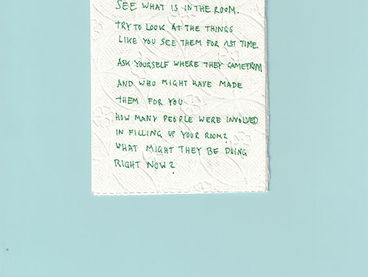 SEE WHAT IS IN THE ROOM.
TRY TO LOOK AT THE THINGS
LIKE YOU SEE THEM FOR 1ST TIME.
ASK YOURSELF WHERE THEY CAME FROM
AND WHO MIGHT HAVE MADE
THEM FOR YOU
HOW MANY PEOPLE WERE INVOLVED
IN FILLING UP YOUR ROOM?
WHAT MIGHT THEY BE DOING
RIGHT NOW?